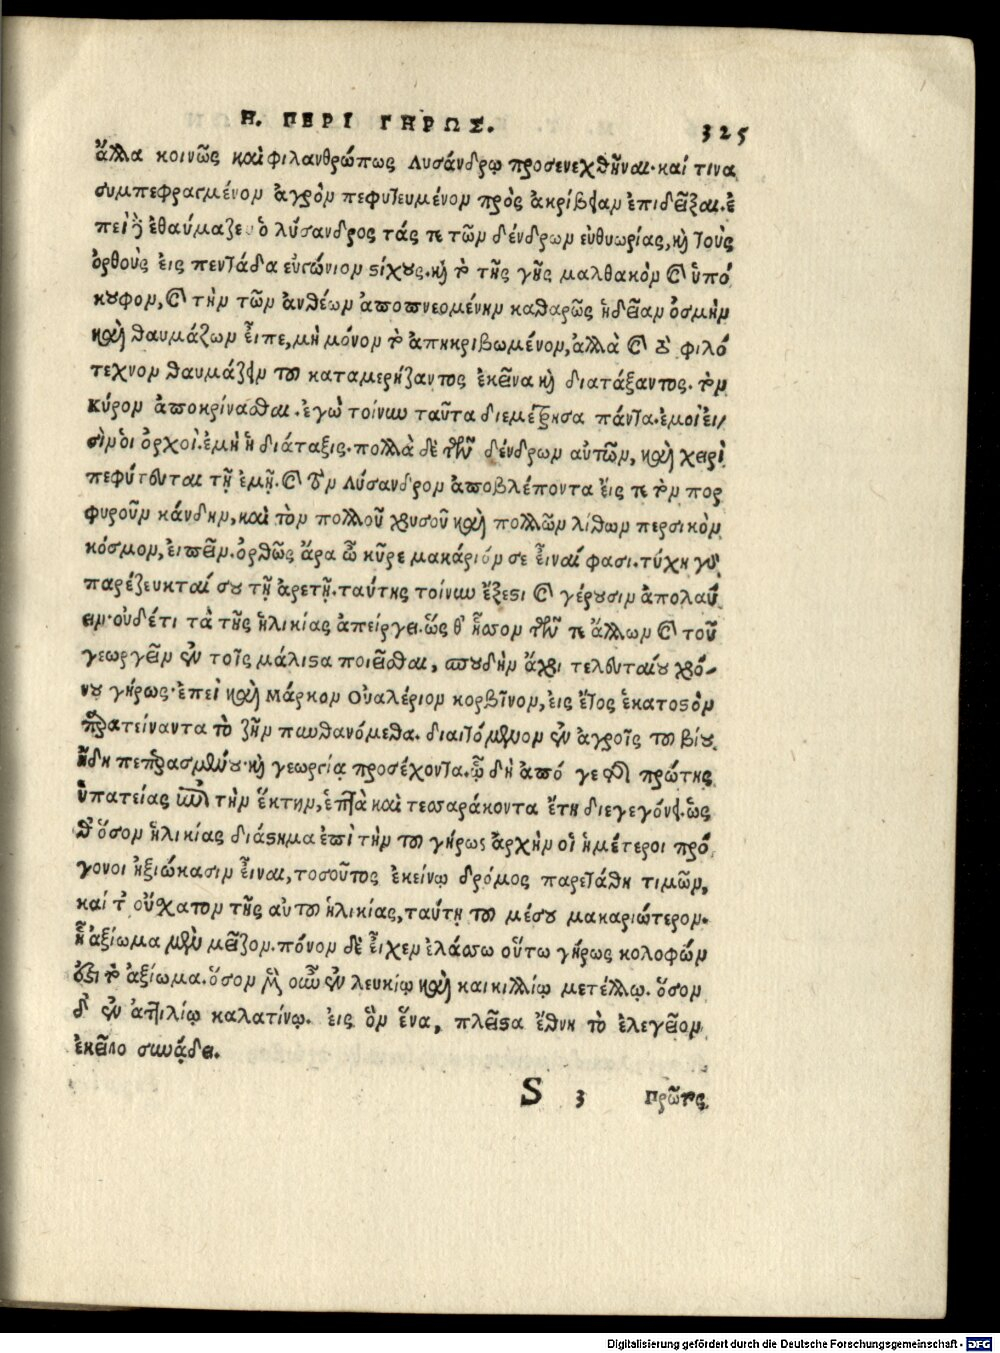 Η. ΠΕΡΙ ΓΗΡΩΣ. 325
ἄλλα κοινῶς καὶ φιλανθρώπως Λυσάνδρῳ προσενεχθῆναι· καί τινα
συμπεφραγμένον ἀγρὸν πεφυτευμένον πρὸς ἀκρίβειαν ἐπιδεῖξαι. ἐ
πεὶ δὲ ἐθαύμαζεν ὁ λύσανδρος τάς τε τῶν δένδρων εὐθυωρίας, καὶ τοὺς
ὀρθοὺς εἰς πεντάδα εὐγώνιον στίχους. καὶ τὸ τῆς γῆς μαλθακὸν καὶ ὑπό
κουφον, καὶ τὴν τῶν ἀνθέων ἀποπνεομένην καθαρῶς ἡδεῖαν ὀσμὴν
καὶ θαυμάζων εἶπε, μὴ μόνον τὸ ἀπηκριβωμένον, ἀλλὰ καὶ τὸ φιλό
τεχνον θαυμάζειν τοῦ καταμερήζαντος ἐκεῖνα καὶ διατάξαντος. τὸν
κύρον ἀποκρίνασθαι. ἐγὼ τοίνυν ταῦτα διεμέτρησα πάντα. ἐμοί εἰ/
σὶν οἱ ὀρχοὶ. ἐμὴ ἡ διάταξις. πολλὰ δὲ τῶν δένδρων αὐτῶν, καὶ χειρὶ
πεφύτευται τῇ ἐμῇ. καὶ τὸν Λύσανδρον ἀποβλέποντα εἴς τε τὸν πορ
φυροῦν κάνδην, καὶ τὸν πολλοῦ χρυσοῦ καὶ πολλῶν λίθων περσικὸν
κόσμον, εἰπεῖν. ὀρθῶς ἄρα ὦ κῦρε μακάριόν σε εἶναί φασι. τύχη γὰρ
παρέζευκταί σου τῇ ἀρετῇ. ταύτης τοίνυν ἔξεστι καὶ γέρουσιν ἀπολαύ
ειν· οὐδέτι τὰ τῆς ἡλικίας ἀπείργει. ὥς θ' ἧσσον τῶν τε ἄλλων καὶ τοῦ
γεωργεῖν ἐν τοῖς μάλιστα ποιεῖσθαι, σπουδὴν ἄχρι τελευταίου χρό-
νου γήρως· ἐπεὶ καὶ μάρκον Οὐαλέριον κορβῖνον, εἰς ἔτος ἑκατοστὸν
παρατείναντα τὸ ζῆν πυνθανόμεθα. διαιτόμενον ἐν ἀγροῖς τοῦ βίου
ἤδη πεπερασμένου· καὶ γεωργίᾳ προσέχοντα. ᾧ δὴ ἀπό γε τῆς πρώτης
ὑπατείας ἐπὶ τὴν ἕκτην, ἑπτὰ καὶ τεσσαράκοντα ἔτη διεγεγόνει. ὡς
θ' ὅσον ἡλικίας διάστημα ἐπὶ τὴν τοῦ γήρως ἀρχὴν οἱ ἡμέτεροι πρό
γονοι ἠξιώκασιν εἶναι, τοσοῦτος ἐκείνῳ δρόμος παρετάθη τιμῶν,
καί τὸ οὔχατον τῆς αὐτοῦ ἡλικίας, ταύτῃ τοῦ μέσου μακαριώτερον.
ἧ ἀξίωμα μὲν μεῖζον. πόνον δὲ εἶχεν ἐλάσσω οὕτω γήρως κολοφών
ἐστι τὸ ἀξίωμα. ὅσον μὲν οὖν ἐν λευκίῳ καὶ καικιλλίῳ μετέλλῳ. ὅσον
δ' ἐν ἀτιλίῳ καλατίνῳ. εἰς ὃν ἕνα, πλεῖστα ἔθνη τὸ ἐλεγεῖον
ἐκεῖνο συνᾴδει.
S 3 πρῶτος